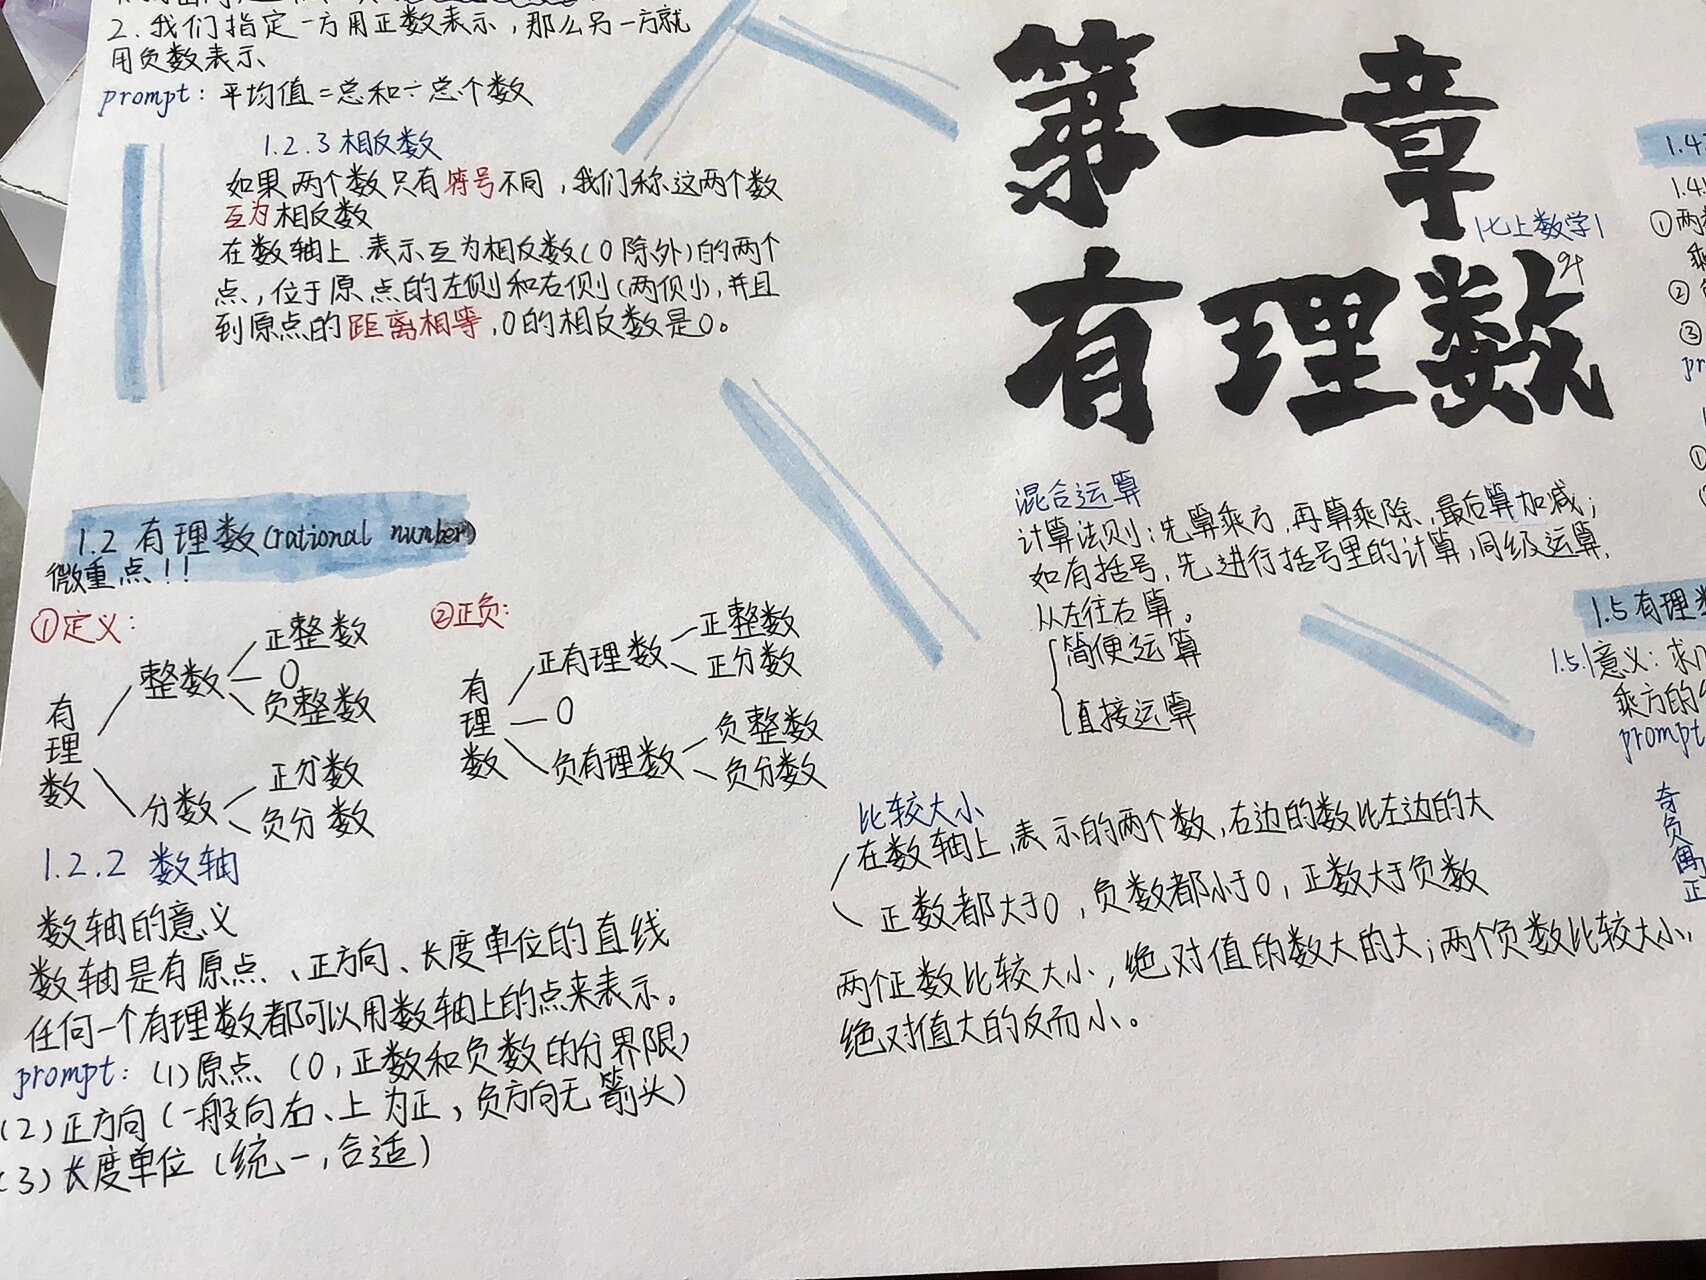 2.我们指定一方用正数表示,那么另一方就
用负数表示
prompt:平均值=总和÷总个数
1.2.3相反数
如果两个数只有符号不同,我们称这两个数
互为相反数
在数轴上.表示互为相反数(0除外)的两个
点,位于原点的左侧和右侧(两侧),并且
到原点的距离相等,0的相反数是0。
第一章
七上数学
有理数
1.2 有理数(rational number)
微重点!!
①定义:
有理数
整数
正整数
0
负整数
分数
正分数
负分数
②正负:
有理数
正有理数
正整数
正分数
0
负有理数
负整数
负分数
1.2.2 数轴
数轴的意义
数轴是有原点、正方向、长度单位的直线
任何一个有理数都可以用数轴上的点来表示。
prompt:(1)原点(0,正数和负数的分界限)
(2)正方向(一般向右、上为正,负方向无箭头)
(3)长度单位(统一,合适)
混合运算
计算法则:先算乘方,再算乘除,最后算加减;
如有括号,先进行括号里的计算,同级运算,
从左往右算。
简便运算
直接运算
比较大小
在数轴上,表示的两个数,右边的数比左边的大
正数都大于0,负数都小于0,正数大于负数
两个正数比较大小,绝对值的数大的大;两个负数比较大小,
绝对值大的反而小。
1.4
1.4
①两
②
③
①
1.5有理
1.5.1意义:求
乘方的
prompt
奇负偶正